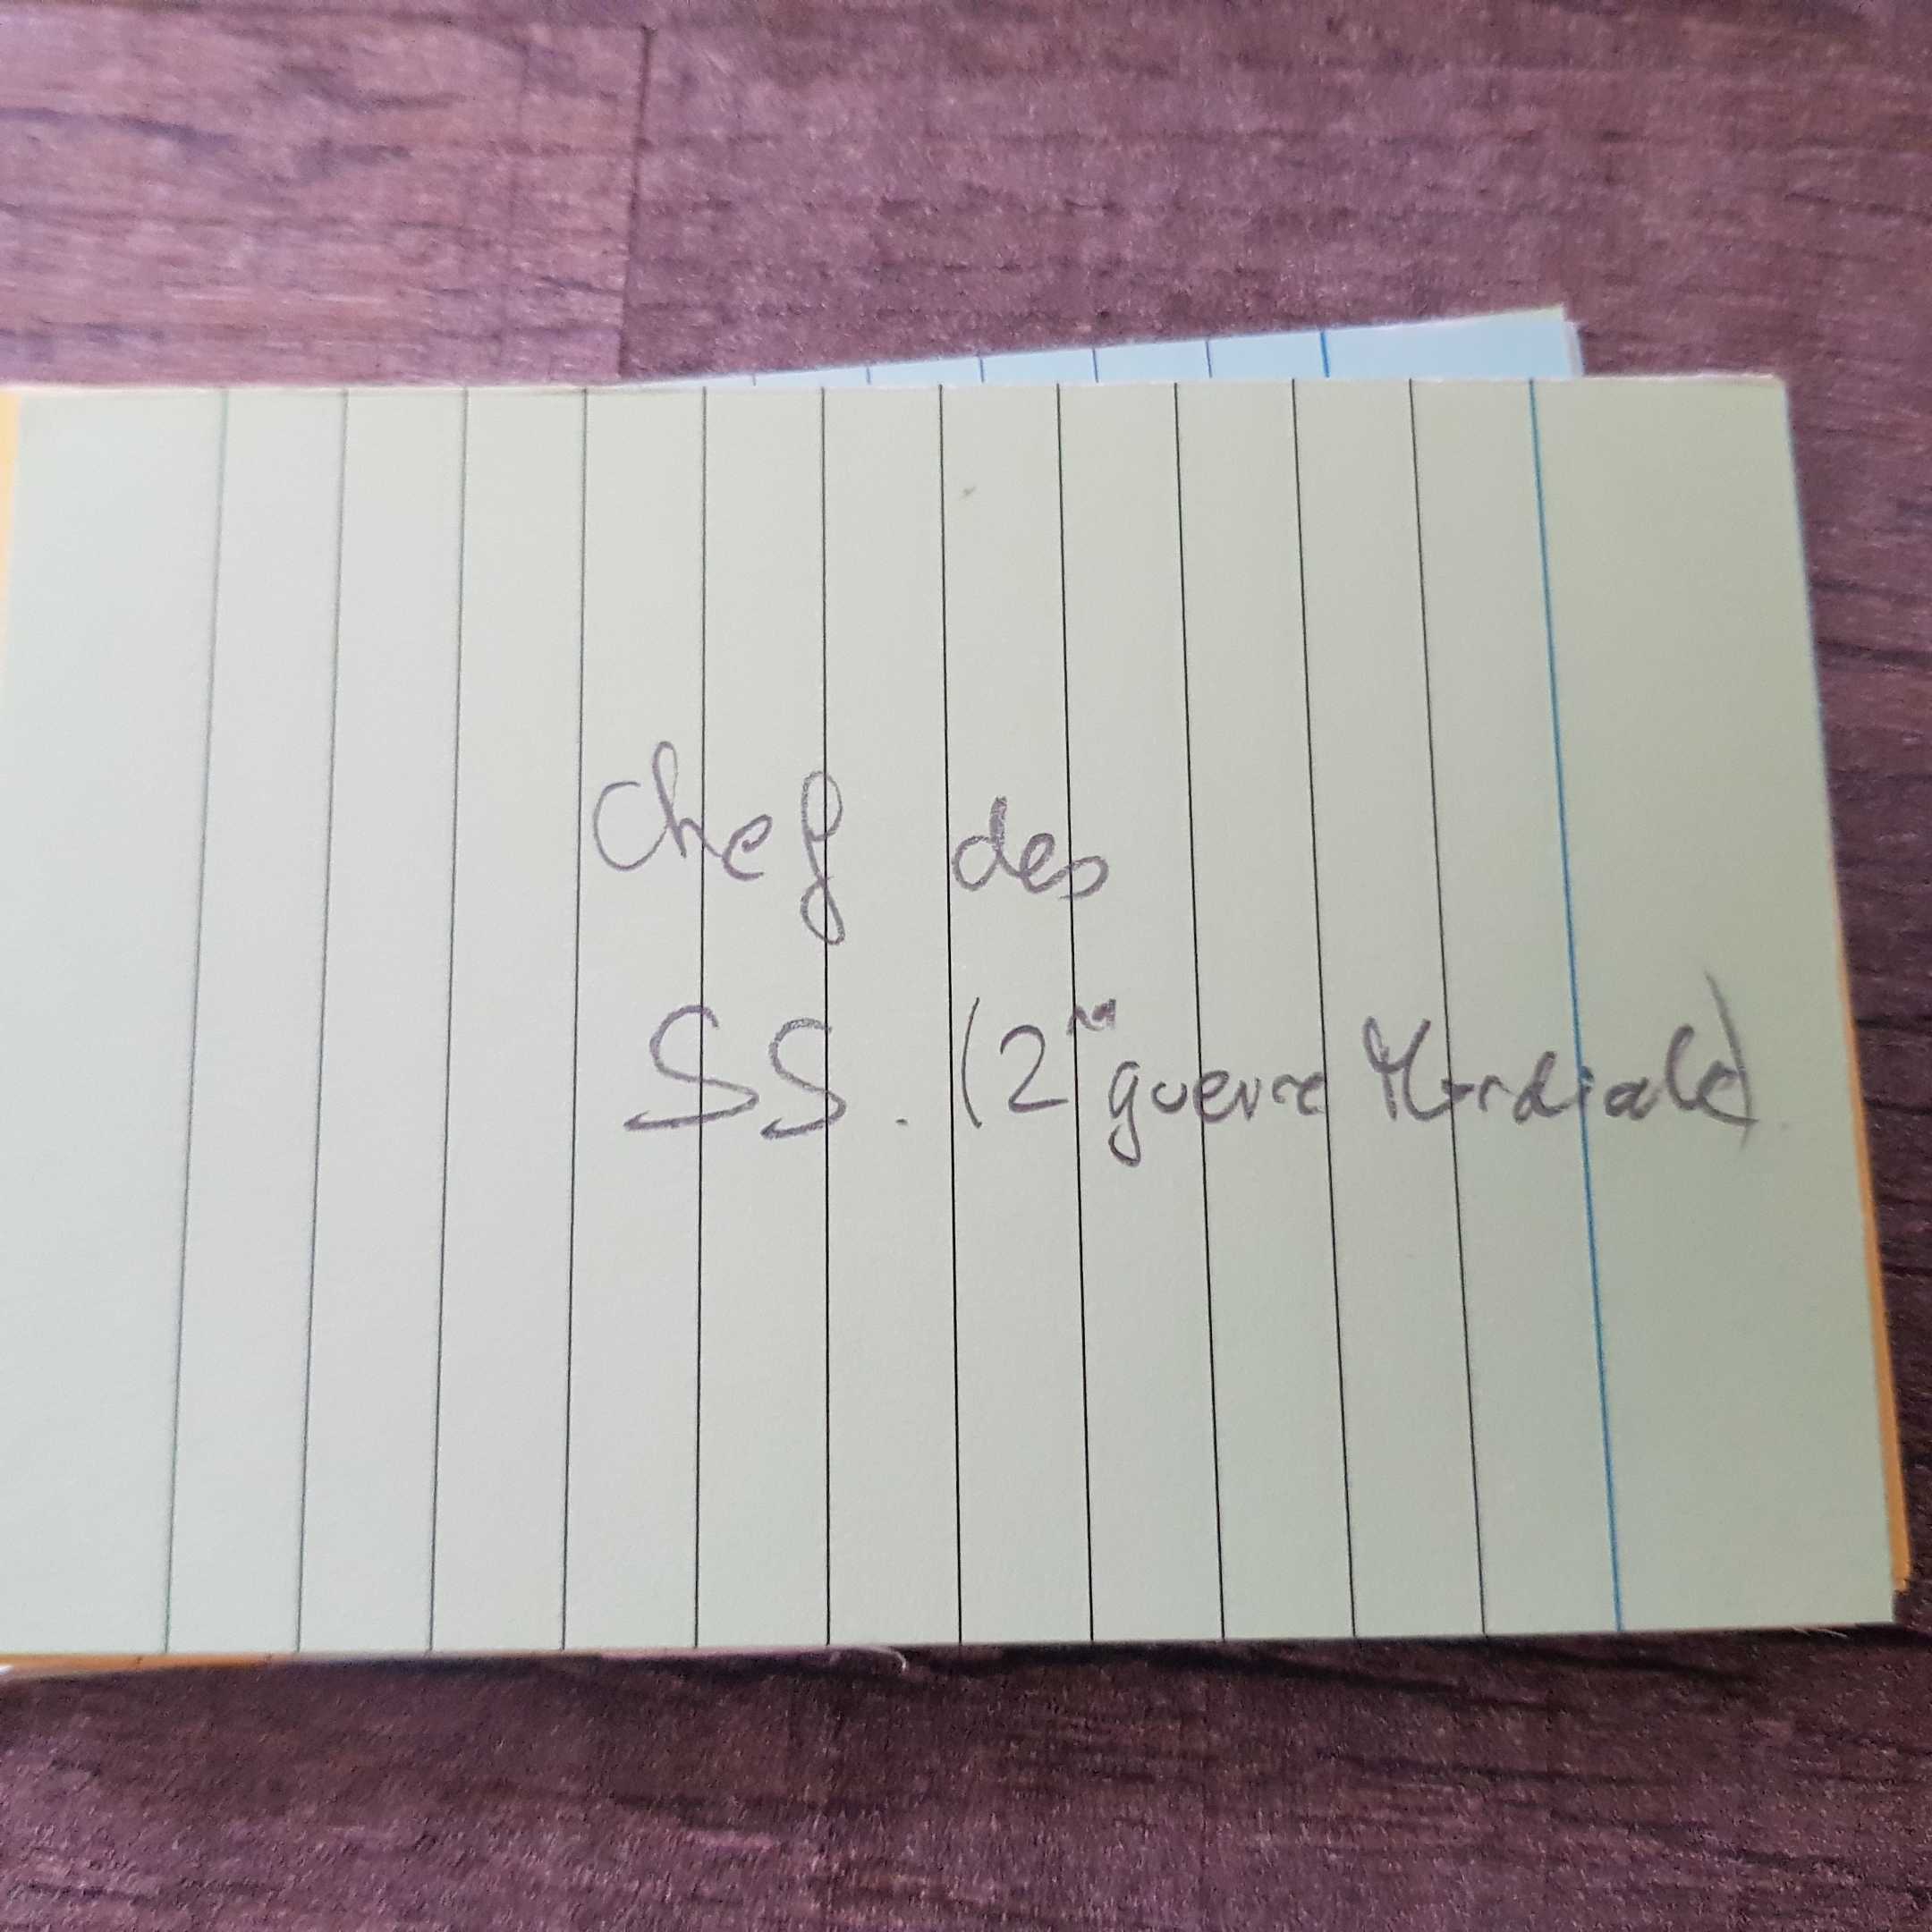 Chef des
SS. (2me guerre Mondiale)